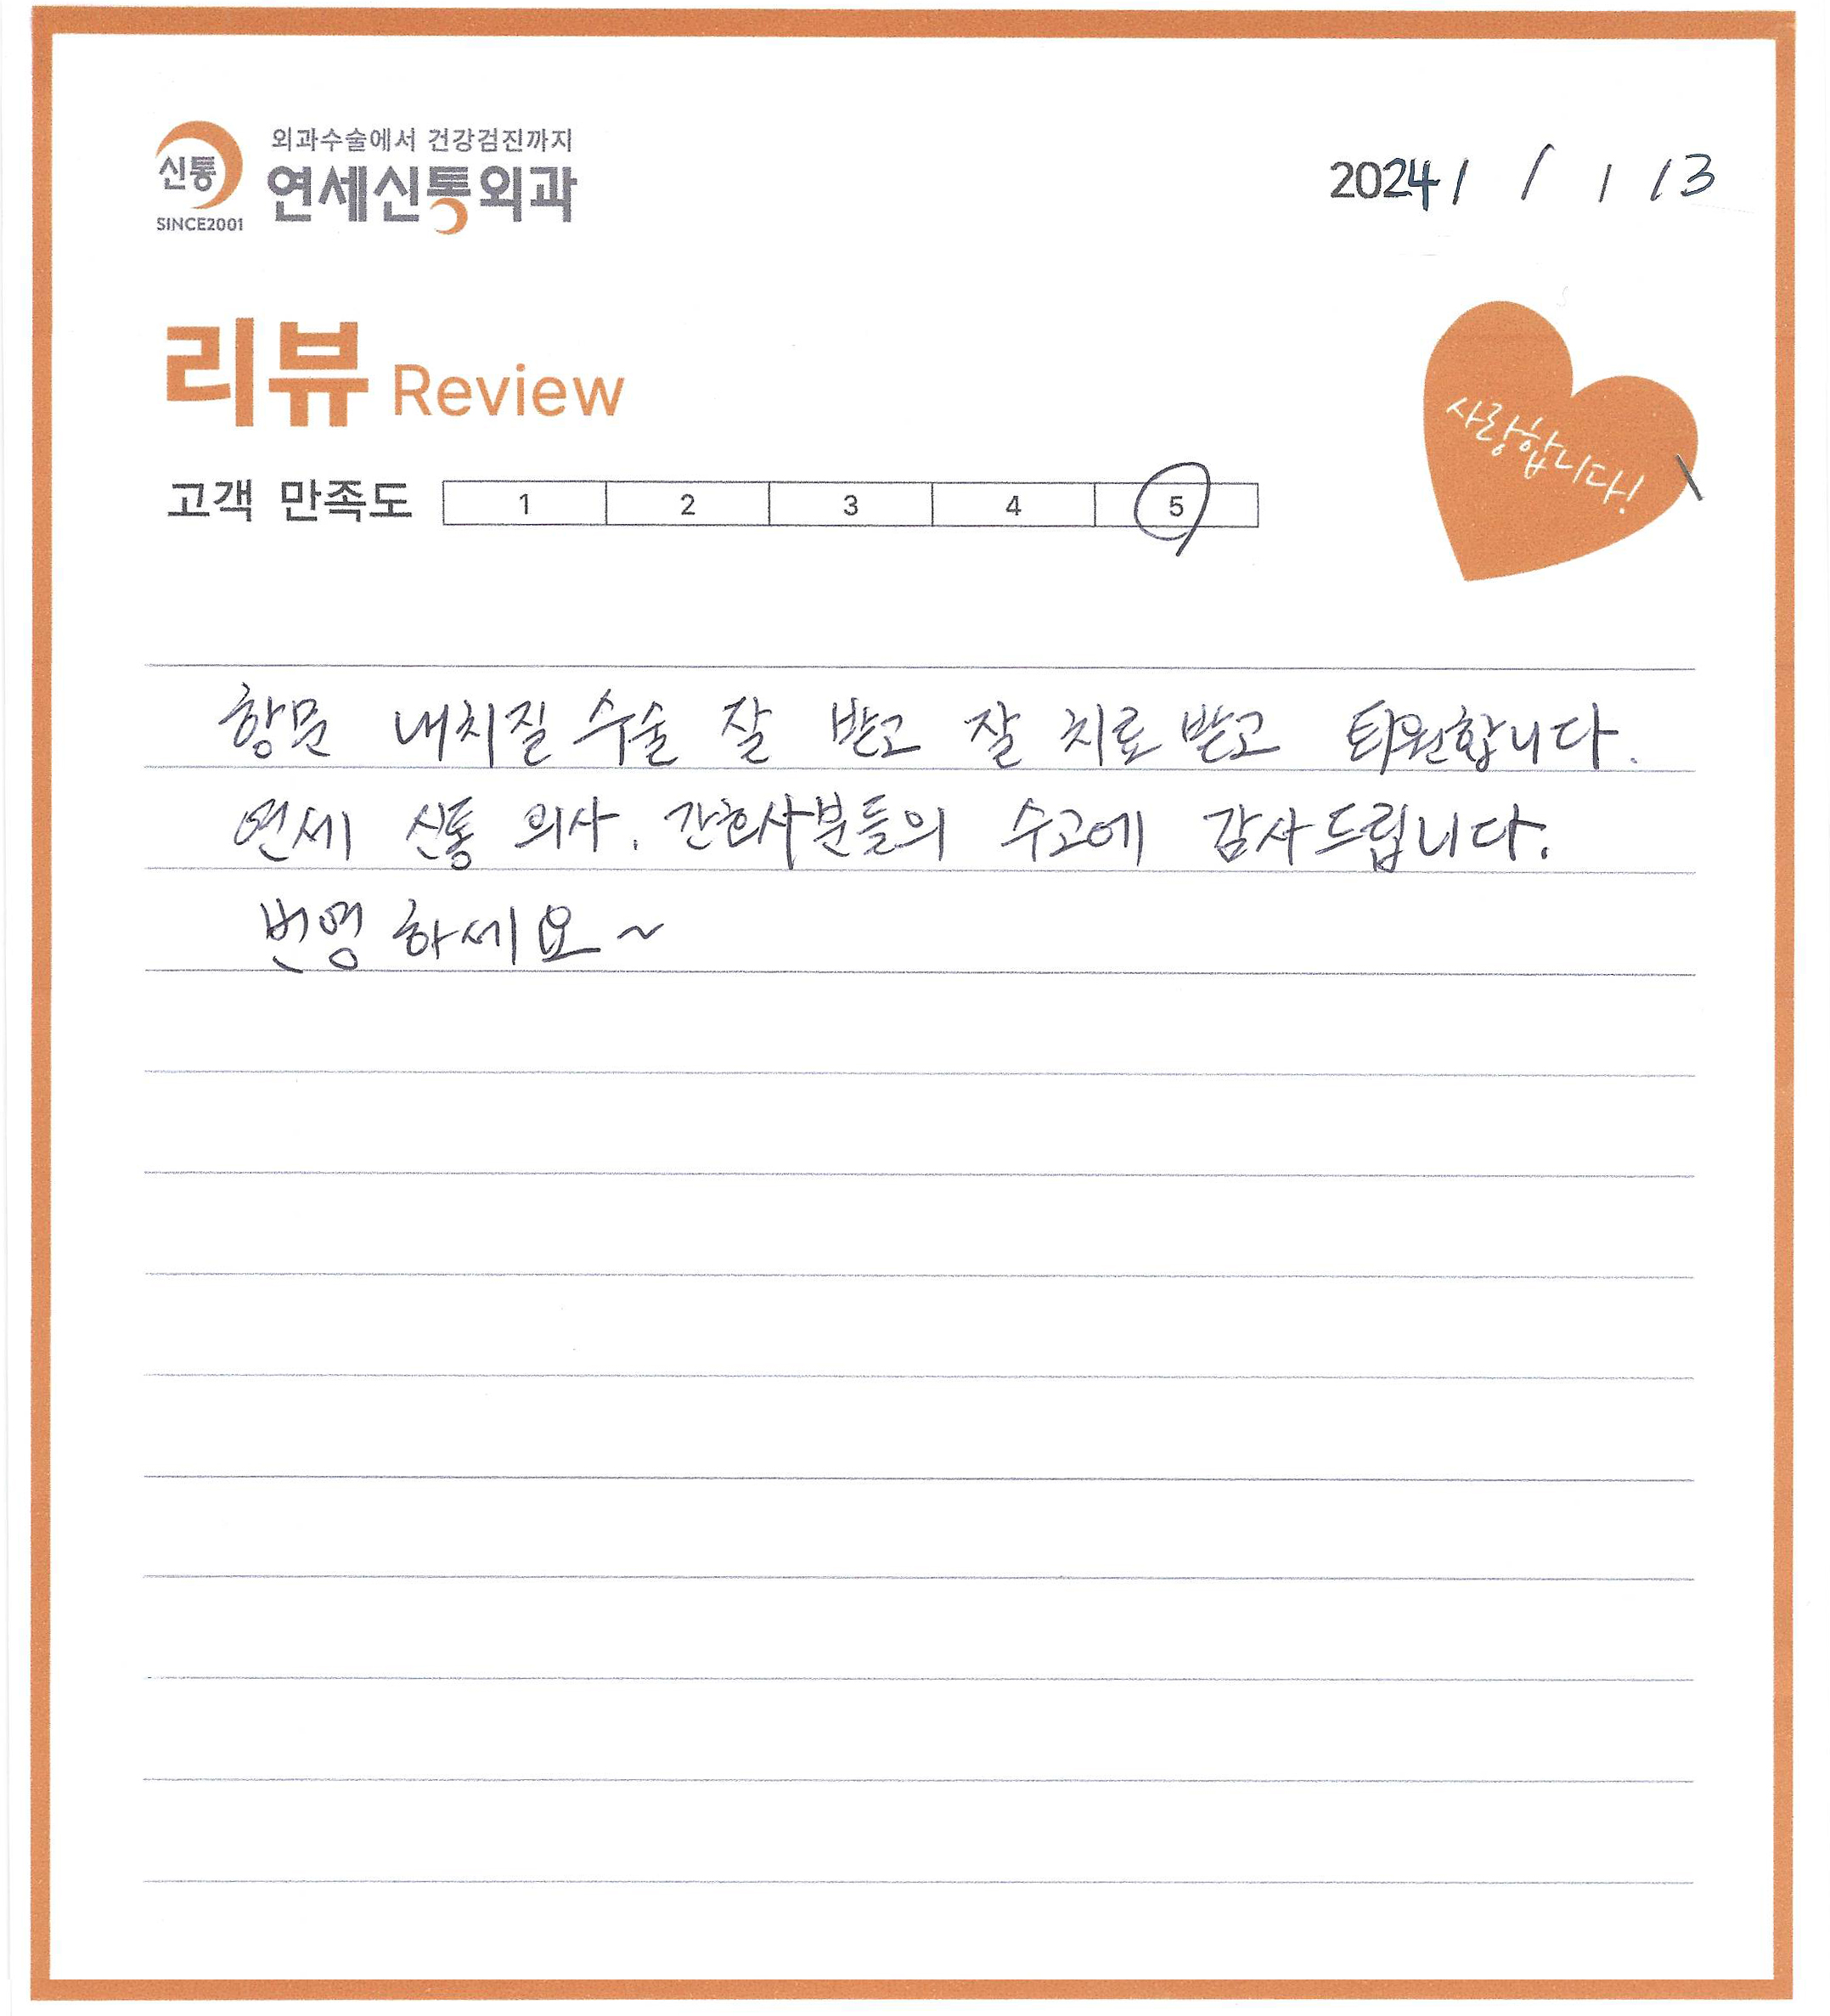 외과수술에서 건강검진까지
신통
연세신통외과
SINCE2001
2024 / / 1 / 13
리뷰 Review
사랑합니다!
고객 만족도 1 2 3 4 5
항문 내치질 수술 잘 받고 잘 치료 받고 퇴원합니다.
연세 신통 의사. 간호사분들의 수고에 감사드립니다.
번영 하세요~